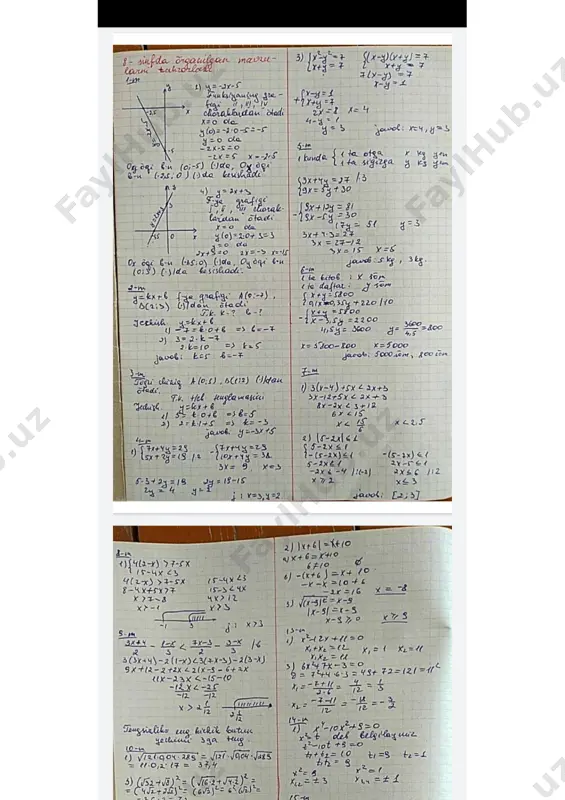 8-sinfda o'rganilgan mavzu-
larni takrorlash
1-m
2) y = -2x-5
funksiyaning gra-
figi II, III, IV
choraklardan o'tadi
x=0 da
y(0)=-2·0-5=-5
y=0 da
-2x-5=0
-2x=5 x=-2.5
Ox o'qi b-n (0;-5) (·)da, Oy o'qi
b-n (-2.5, 0) (·)da kesishadi
4) y=2x+3
F-ya grafigi
I, II, III chorak-
lardan o'tadi
x=0 da
y(0)=2·0+3=3
y=0 da
2x+3=0 2x=-3 x=-1.5
Ox o'qi b-n (-1.5; 0) (·)da, Oy o'qi b-n
(0;3) (·)da kesishadi.
2-m
y=kx+b f-ya grafigi A(0;-7),
B(2;3) (·)dan o'tadi
T.k. k-? b-?
Yechish: y=kx+b
1) -7=k·0+b ⇒ b=-7
2) 3=2·k-7
2·k=10 ⇒ k=5
javob: k=5 b=-7
3-m
To'g'ri chiziq A(0;5), B(1;2) (·)dan
o'tadi.
T.k. tenglamasini
Yechish: y=kx+b
1) 5=k·0+b ⇒ b=5
2) 2=k·1+5 ⇒ k=-3
javob: y=-3x+5
4-m
1) {7x+4y=29 {7x+4y=29
{5x+2y=19 /·2 {10x+4y=38
3x=9 x=3
5·3+2y=19 2y=19-15
2y=4 y=2
j: x=3, y=2
3) {x²-y²=7 {(x-y)(x+y)=7
{x+y=7 x+y=7
7(x-y)=7
x-y=1
+{x-y=1
{x+y=7
2x=8 x=4
4-y=1
y=3 javob: x=4, y=3
5-m
1 kunda {1 ta otga x kg yem
{1 ta sigirga y kg yem
{9x+12y=81
{9x-5y=30
17y=51 y=3
3x+4·3=27
3x=27-12
3x=15 x=5
javob: 5kg, 3kg.
6-m
1 ta kitob: x so'm
1 ta daftar: y so'm
{x+y=5800
{x+y=5800
{x-3,5y=2200
4,5y=3600 y=3600/4,5=800
x=5800-800 x=5000
javob: 5000 so'm, 800 so'm
7-m
1) 3(x-4)+5x<2x+3
3x-12+5x<2x+3
8x-2x<3+12
6x<15
x<15/6 x<2.5
2) |5-2x|≤1
{5-2x≤1
{-(5-2x)≤1 -(5-2x)≤1
5-2x≤1 2x-5≤1
-2x≤-4 /:(-2) 2x≤6 /:2
x≥2 x≤3
javob: [2;3]
8-m
1) {4(2-x)>7-5x
{15-4x<3
4(2-x)>7-5x 15-4x<3
8-4x+5x>7 15-3<4x
x>7-8 4x>12
x>-1 x>3
-1 3 j: x>3
9-m
(3x+4)/2 - (1-x)/3 < (7x-3)/2 - (3-x)/3 /·6
3(3x+4)-2(1-x)<3(7x-3)-2(3-x)
9x+12-2+2x<21x-9-6+2x
11x-23x<-15-10
-12x<-25
x>2 1/12
Tengsizlik eng kichik butun
yechimi 3 ga teng
10-m
1) √(121·0,04·289)=√121·√0,04·√289
=11·0,2·17=37,4
3) (√32+√8)²=(√(16·2)+√(4·2))²=
=(4√2+2√2)²=(6√2)²=6²(√2)²=
2) |x+6|=x+10
a) x+6=x+10
6≠10 ∅
b) -(x+6)=x+10
-x-x=10+6
-2x=16 x=-8
3) √(x-9)²=x-9
|x-9|=x-9
x-9≥0 x≥9
13-m
1) x²-12x+11=0
x₁+x₂=12 x₁=1 x₂=11
x₁x₂=11
3) 6x²+7x-3=0
D=7²+4·6·3=49+72=121=11²
x₁=(-7+11)/(2·6)=4/12=1/3
x₂=(-7-11)/12=-18/12=-3/2
14-m
1) x⁴-10x²+9=0
x²=t deb belgilaymiz
t²-10t+9=0
t₁+t₂=10 t₁=9 t₂=1
t₁t₂=9
x²=9 x²=1
x₁,₂=±3 x₃,₄=±1
15-m
FaylHub.uz